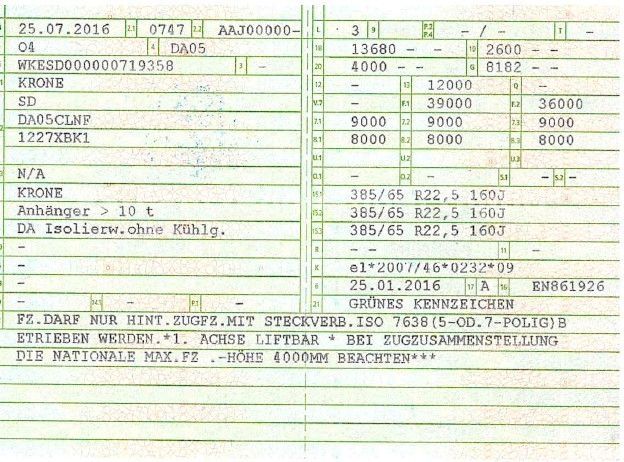 25.07.2016 2.1 0747 2.2 AAJ00000-
04 4 DA05
WKESD000000719358 3 -
KRONE
SD
DA05CLNF
1227XBK1
N/A
KRONE
Anhänger > 10 t
DA Isolierw.ohne Kühlg.
-
-
-
- 14.1 - P.1 -
L 3 9 P.2 P.4 - / - T -
18 13680 - - 19 2600 - -
20 4000 - - G 8182 - -
12 - 13 12000 Q -
V.7 - F.1 39000 F.2 36000
7.1 9000 7.2 9000 7.3 9000
8.1 8000 8.2 8000 8.3 8000
U.1 U.2 U.3
O.1 - O.2 - S.1 - S.2 -
15.1 385/65 R22,5 160J
15.2 385/65 R22,5 160J
15.3 385/65 R22,5 160J
R - - 11 -
K e1*2007/46*0232*09
6 25.01.2016 17 A 16 EN861926
21 GRÜNES KENNZEICHEN
FZ.DARF NUR HINT.ZUGFZ.MIT STECKVERB.ISO 7638(5-OD.7-POLIG)B
ETRIEBEN WERDEN.*1. ACHSE LIFTBAR * BEI ZUGZUSAMMENSTELLUNG
DIE NATIONALE MAX.FZ .-HÖHE 4000MM BEACHTEN***